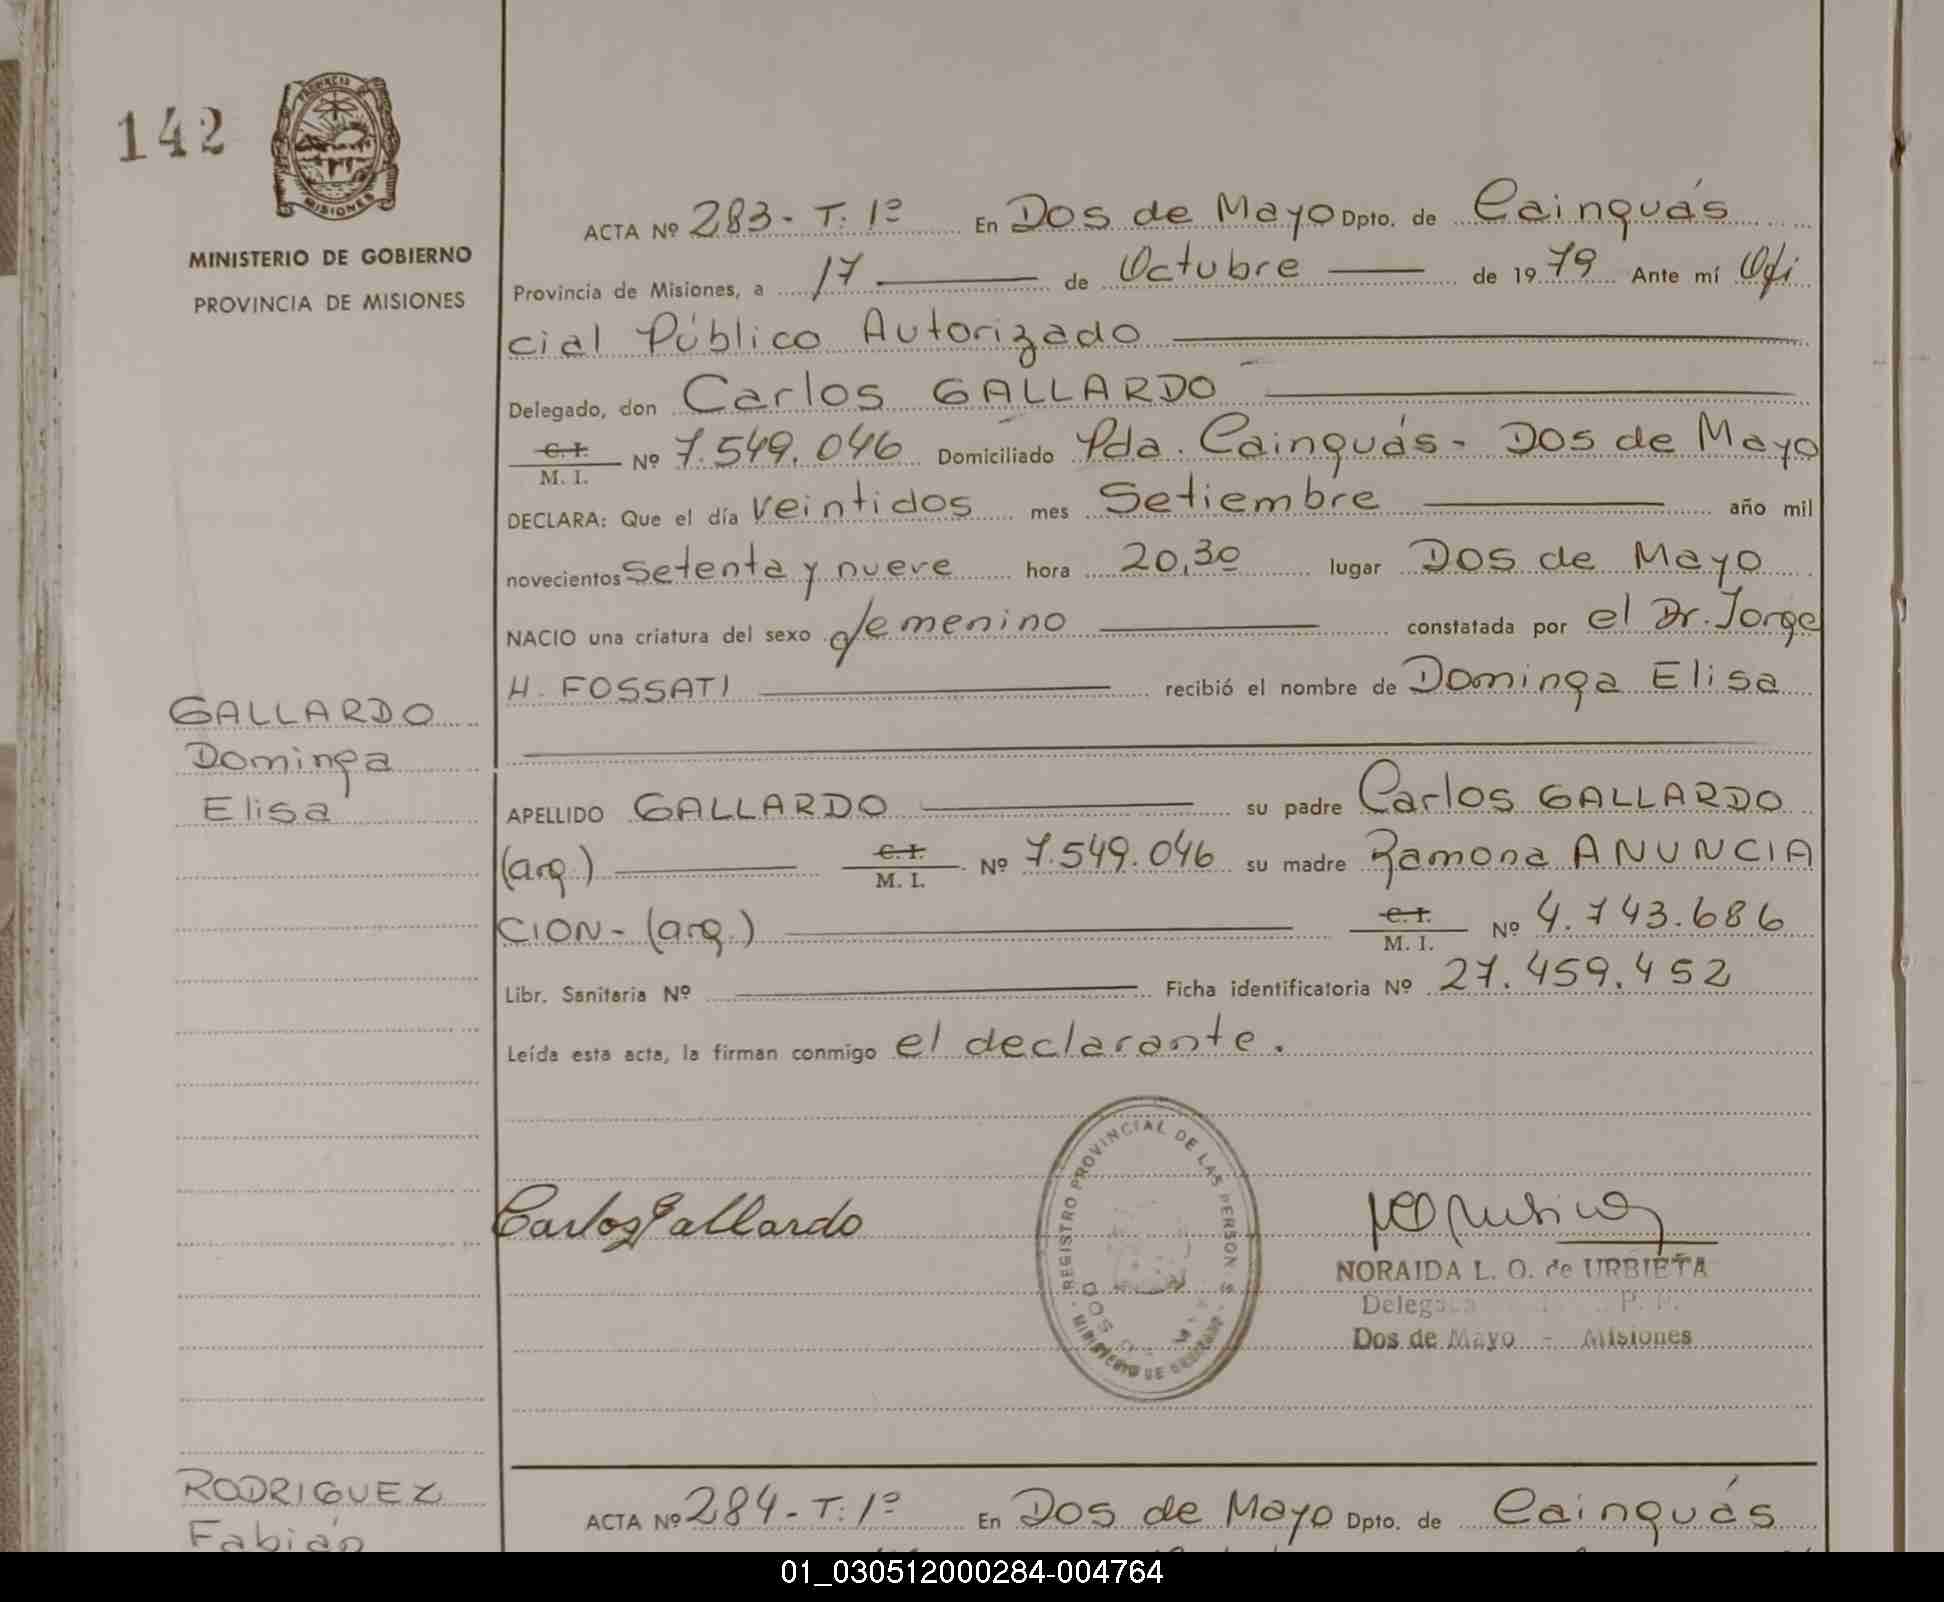 142
PROVINCIA
MISIONES
MINISTERIO DE GOBIERNO
PROVINCIA DE MISIONES
ACTA Nº 283- T: 1º En Dos de Mayo Dpto. de Cainguás
Provincia de Misiones, a 17 de Octubre de 1979 Ante mí Ofi
cial Público Autorizado
Delegado, don Carlos GALLARDO
C. I.
M. I. Nº 7.549.046 Domiciliado Pda. Cainguás - Dos de Mayo
DECLARA: Que el día Veintidos mes Setiembre año mil
novecientos Setenta y nueve hora 20,30 lugar Dos de Mayo
NACIO una criatura del sexo femenino constatada por el Dr. Jorge
H. FOSSATI recibió el nombre de Dominga Elisa
GALLARDO
Dominga
Elisa
APELLIDO GALLARDO su padre Carlos GALLARDO
(arg.) C. I. M. I. Nº 7.549.046 su madre Ramona ANUNCIA
CION- (arg.) C. I. M. I. Nº 4.743.686
Libr. Sanitaria Nº Ficha identificatoria Nº 27.459.452
Leída esta acta, la firman conmigo el declarante.
Carlos Gallardo
REGISTRO PROVINCIAL DE LAS PERSONAS
MINISTERIO DE GOBIERNO
NORAIDA L. O. de URBIETA
Dos de Mayo - Misiones
RODRIGUEZ
Fabián
ACTA Nº 284- T: 1º En Dos de Mayo Dpto. de Cainguás
01_030512000284-004764